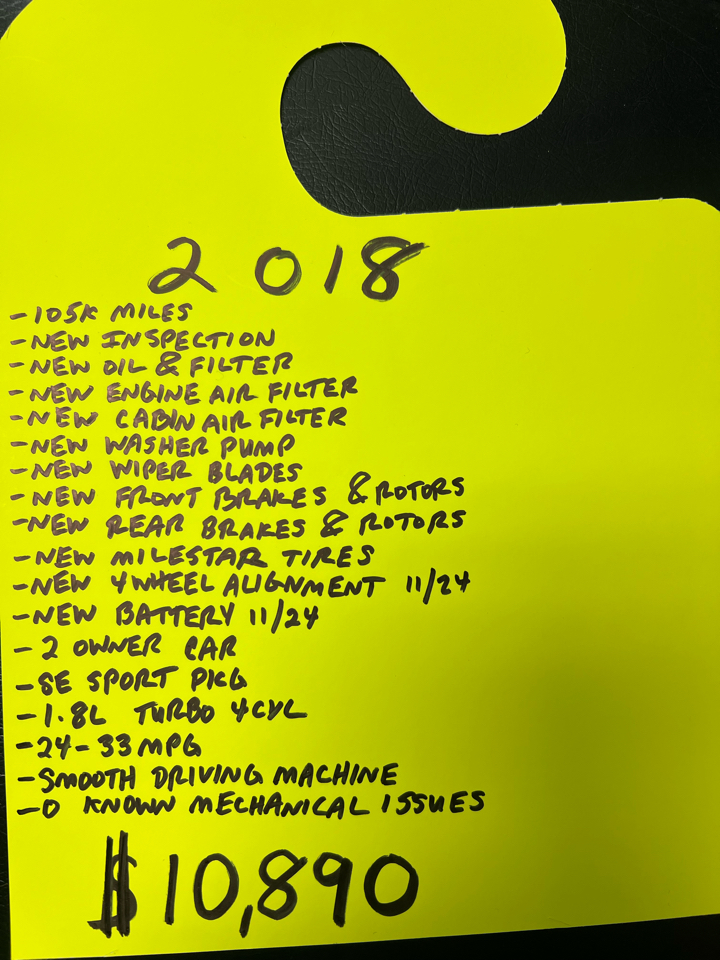 2018
-105K MILES
-NEW INSPECTION
-NEW OIL & FILTER
-NEW ENGINE AIR FILTER
-NEW CABIN AIR FILTER
-NEW WASHER PUMP
-NEW WIPER BLADES
-NEW FRONT BRAKES & ROTORS
-NEW REAR BRAKES & ROTORS
-NEW MILESTAR TIRES
-NEW 4WHEEL ALIGNMENT 11/24
-NEW BATTERY 11/24
-2 OWNER CAR
-SE SPORT PKG
-1.8L TURBO 4CYL
-24-33MPG
-SMOOTH DRIVING MACHINE
-0 KNOWN MECHANICAL ISSUES
$10,890